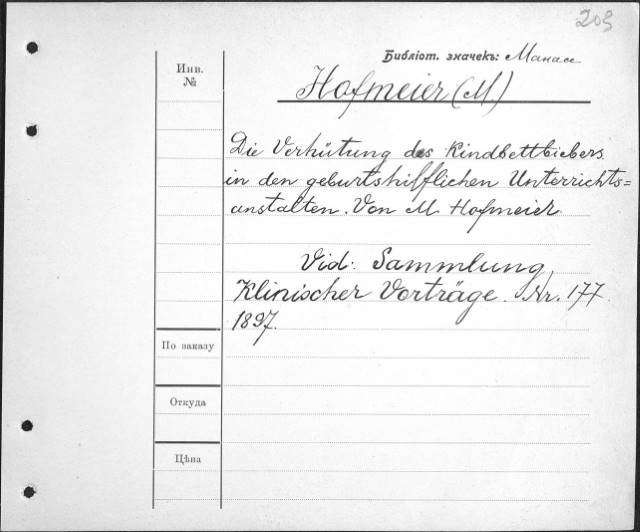 203
Библіот. значекъ: Манасе
Инв.
№
Hofmeier (M.)
Die Verhütung des Kindbettbiebers
in den geburtshilfflichen Unterrichts=
anstalten. Von M. Hofmeier.
Vid: Sammlung
Klinischer Vorträge. Nr. 177.
1897.
По заказу
Откуда
Цѣна